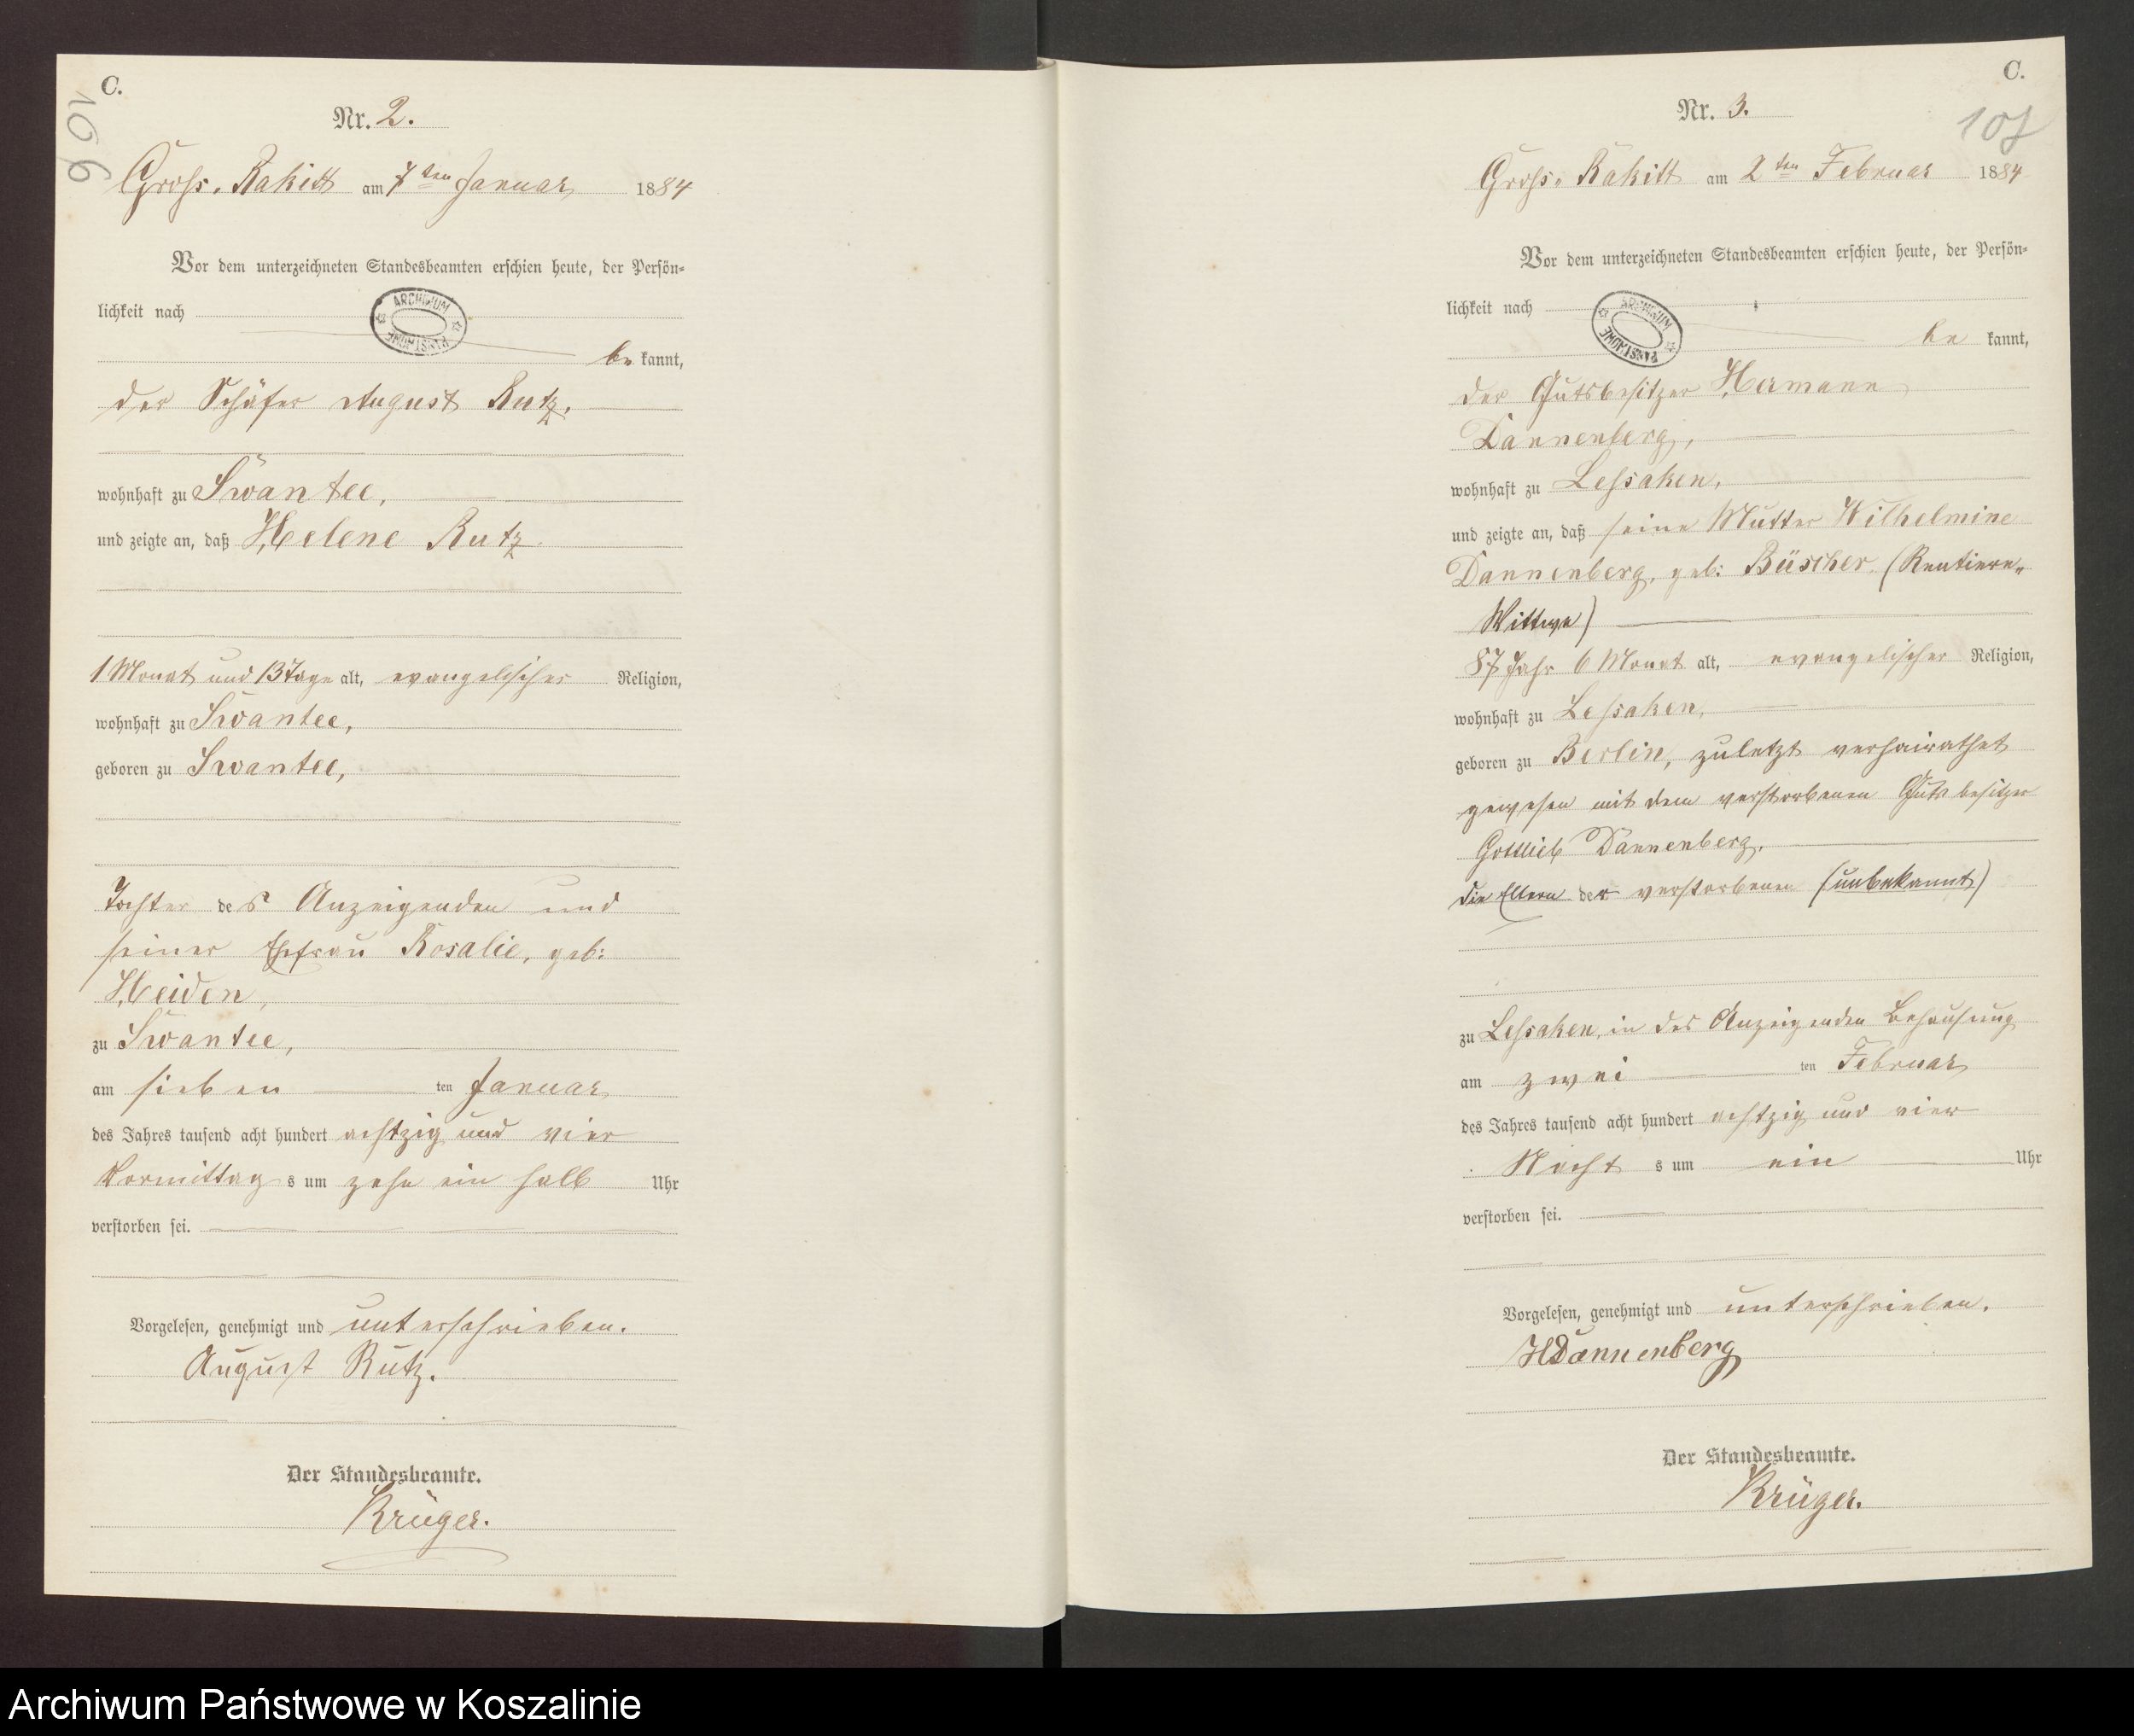 C.
106
Nr. 2.
Gross. Rakitt am 7ten Januar 1884
Vor dem unterzeichneten Standesbeamten erschien heute, der Persön-
lichkeit nach
be kannt,
der Schäfer August Rutz,
wohnhaft zu Swantee,
und zeigte an, daß Helene Rutz
1 Monat und 13 Tage alt, evangelischer Religion,
wohnhaft zu Swantee,
geboren zu Swantee,
Tochter des Anzeigenden und
seiner Ehefrau Rosalie, geb:
Heiden,
zu Swantee,
am sieben ten Januar
des Jahres tausend acht hundert achtzig und vier
Vormittag s um zehn ein halb Uhr
verstorben sei.
Vorgelesen, genehmigt und unterschrieben.
August Rutz.
Der Standesbeamte.
Krüger.
ARCHIWUM PAŃSTWOWE
C.
107
Nr. 3.
Gross. Rakitt am 2ten Februar 1884
Vor dem unterzeichneten Standesbeamten erschien heute, der Persön-
lichkeit nach
be kannt,
der Gutsbesitzer Hermann
Dannenberg,
wohnhaft zu Lessaken,
und zeigte an, daß seine Mutter Wilhelmine
Dannenberg, geb: Büscher (Rentiere-
Wittwe)
87 Jahr 6 Monat alt, evangelischer Religion,
wohnhaft zu Lessaken,
geboren zu Berlin, zuletzt verheirathet
gewesen mit dem verstorbenen Gutsbesitzer
Gottlieb Dannenberg.
die Eltern der verstorbenen (unbekannt)
zu Lessaken, in des Anzeigenden Behausung
am zwei ten Februar
des Jahres tausend acht hundert achtzig und vier
Nacht s um ein Uhr
verstorben sei.
Vorgelesen, genehmigt und unterschrieben.
HDannenberg
Der Standesbeamte.
Krüger.
ARCHIWUM PAŃSTWOWE
Archiwum Państwowe w Koszalinie